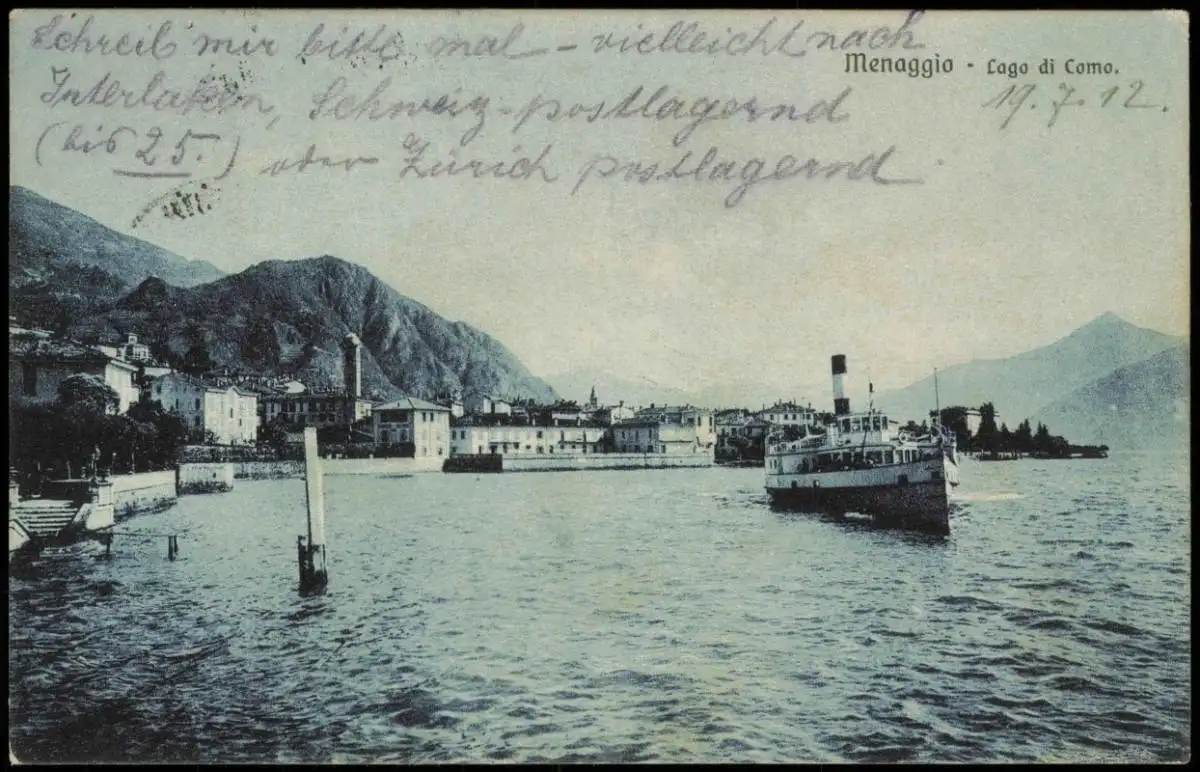 Schreib mir bitte mal – vielleicht nach
Menaggio - Lago di Como.
Interlaken, Schweiz - postlagernd
19.7.12.
(bis 25.) oder Zürich postlagernd